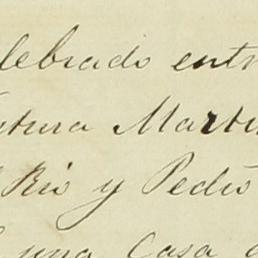 lebrado entr
tura Marti
Rio y Pedro
una Casa